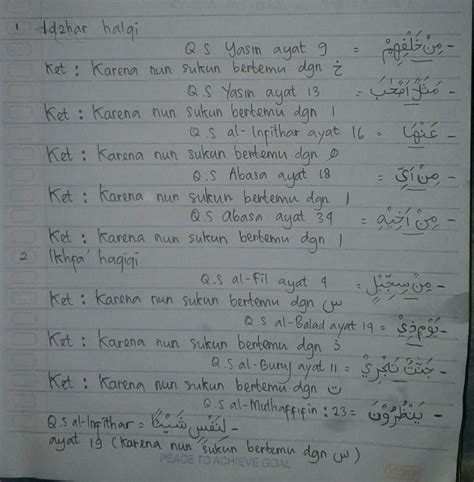 1 Idzhar halqi
Q.S Yasin ayat 9 = مِنْ خَلْفِهِمْ -
Ket : Karena nun sukun bertemu dgn خ
Q.S Yasin ayat 13 = مَثَلًا اَصْحٰبَ -
Ket : Karena nun sukun bertemu dgn ا
Q.S al-Infithar ayat 16 = عَنْهَا -
Ket : Karena nun sukun bertemu dgn ه
Q.S Abasa ayat 18 = مِنْ اَيِّ -
Ket : Karena nun sukun bertemu dgn ا
Q.S Abasa ayat 34 = مِنْ اَخِيْهِ -
Ket : Karena nun sukun bertemu dgn ا
2 Ikhfa' haqiqi
Q.S al-Fil ayat 4 = مِنْ سِجِّيْلٍ -
Ket : Karena nun sukun bertemu dgn س
Q.S al-Balad ayat 14 = يَوْمٍ ذِيْ -
Ket : Karena nun sukun bertemu dgn ذ
Q.S al-Buruj ayat 11 = جَنّٰتٌ تَجْرِيْ -
Ket : Karena nun sukun bertemu dgn ت
Q.S al-Muthaffifin : 23 = يَنْظُرُوْنَ -
Q.S al-Infithar = لِنَفْسٍ شَيْـًٔا -
ayat 19 (karena nun sukun bertemu dgn س)
PEACE TO ACHIEVE GOAL